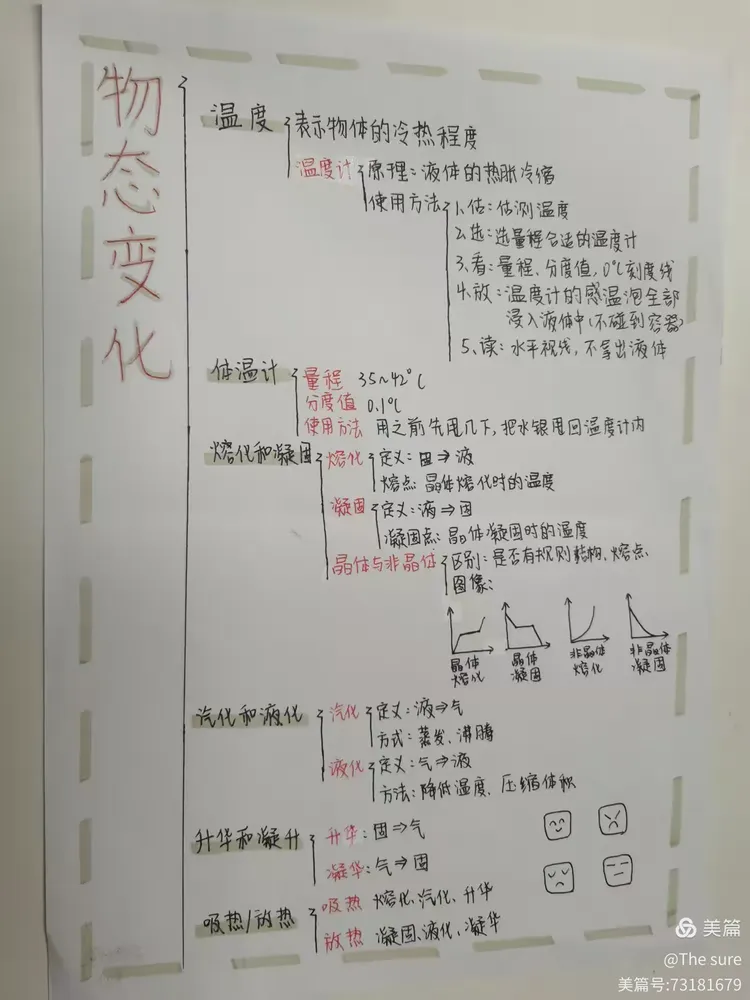 物态变化
温度
表示物体的冷热程度
温度计
原理:液体的热胀冷缩
使用方法
1.估:估测温度
2.选:选量程合适的温度计
3.看:量程、分度值,0℃刻度线
4.放:温度计的感温泡全部
浸入液体中(不碰到容器)
5.读:水平视线,不拿出液体
体温计
量程 35~42℃
分度值 0.1℃
使用方法 用之前先甩几下,把水银甩回温度计内
熔化和凝固
熔化
定义:固⇒液
熔点:晶体熔化时的温度
凝固
定义:液⇒固
凝固点:晶体凝固时的温度
晶体与非晶体
区别:是否有规则结构、熔点
图像:
晶体
熔化
晶体
凝固
非晶体
熔化
非晶体
凝固
汽化和液化
汽化
定义:液⇒气
方式:蒸发、沸腾
液化
定义:气⇒液
方法:降低温度、压缩体积
升华和凝升
升华:固⇒气
凝华:气⇒固
吸热/放热
吸热 熔化、汽化、升华
放热 凝固、液化、凝华
美篇
@The sure
美篇号:73181679